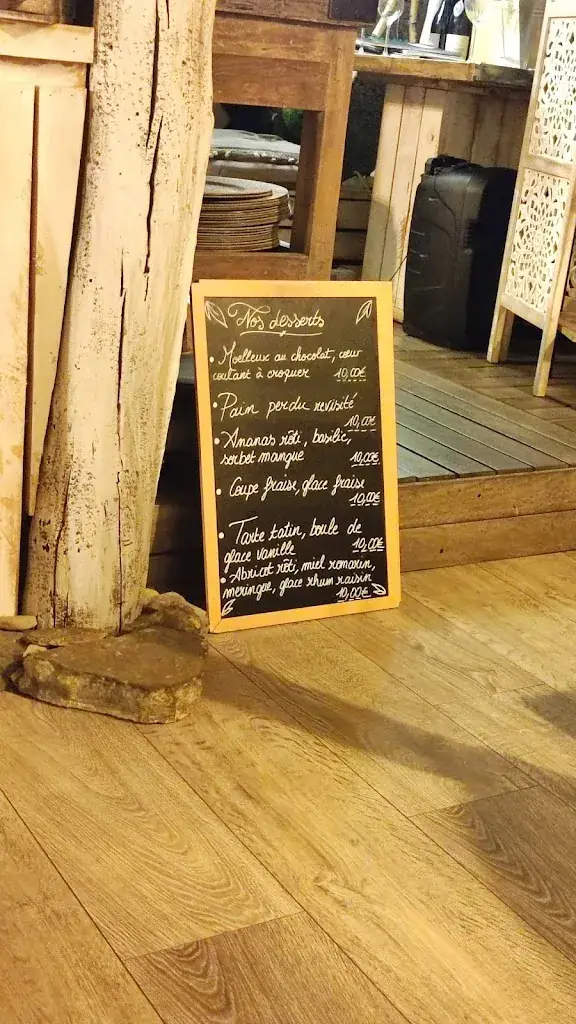 Nos desserts
• Moelleux au chocolat, cœur
coulant à croquer 10,00€
• Pain perdu revisité
10,00€
• Ananas rôti, basilic,
sorbet mangue 10,00€
• Coupe fraise, glace fraise
10,00€
• Tarte tatin, boule de
glace vanille 10,00€
• Abricot rôti, miel romarin,
meringue, glace rhum raisin
10,00€